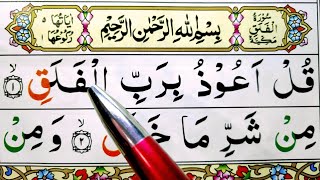 سُورَةُ الْفَلَقِ مَكِّيَّةٌ
بِسْمِ اللهِ الرَّحْمٰنِ الرَّحِيْمِ
اٰيَاتُهَا ٥
رُكُوْعُهَا ١
قُلْ اَعُوْذُ بِرَبِّ الْفَلَقِ ۙ﴿۱﴾
مِنْ شَرِّ مَا ۙ﴿۲﴾ وَمِنْ